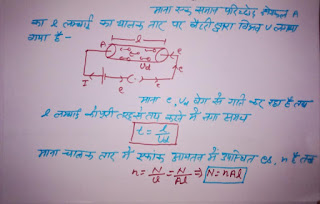 माना एक समान परिच्छेद क्षेत्रफल A
का l लम्बाई का चालक तार पर बैटरी द्वारा विभव V लगाया
गया है -
l
A
e
Vd
e
I
e
e
माना e, Vd वेग से गति कर रहा है तब
l लम्बाई को पूरी तरह से तय करने में लगा समय
t = l/Vd
माना चालक तार में एकांक आयतन में उपस्थित e, n है तब
n = N/V = N/Al ⇒ N = nAl